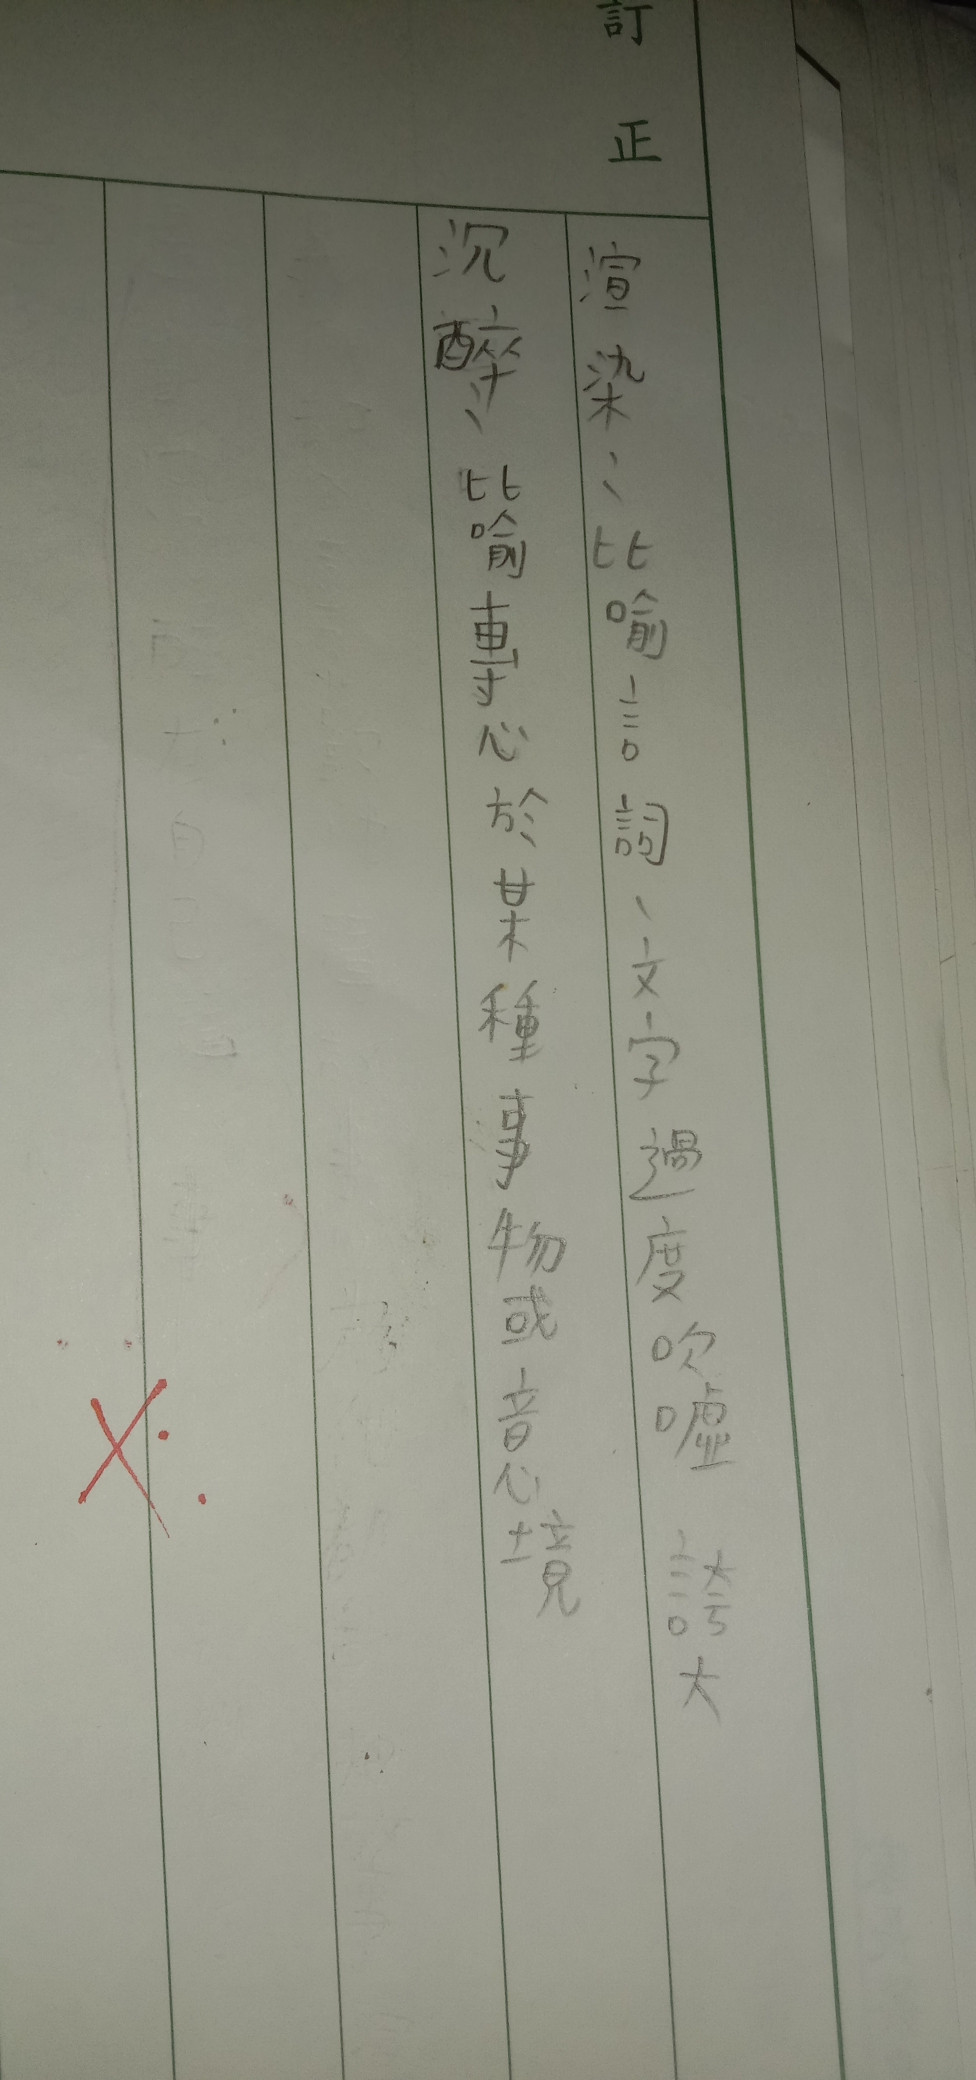 訂正
渲染：比喻言詞、文字過度吹噓誇大
沉醉：比喻專心於某種事物或意境